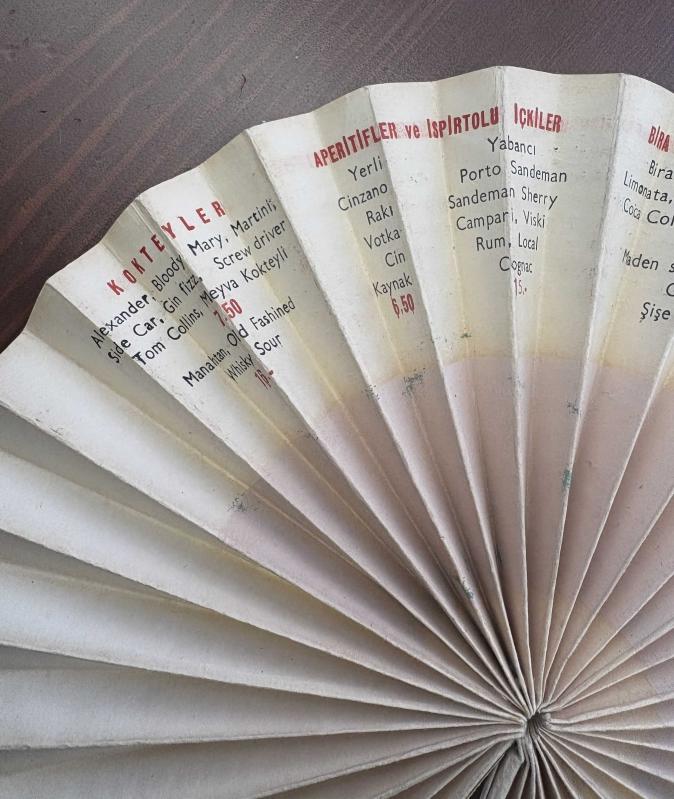 KOKTEYLER
Alexander, Bloody Mary, Martini,
Side Car, Gin fizz, Screwdriver
Tom Collins, Meyva Kokteyli
7.50
Manahtan, Old Fashined
Whisky Sour
APERİTİFLER ve İSPİRTOLU İÇKİLER
Yerli
Cinzano
Rakı
Votka
Cin
Kaynak
6.50
Yabancı
Porto Sandeman
Sandeman Sherry
Campari, Viski
Rum, Local
Cognac
15.-
BİRA
Bira
Limonata,
Coca Col
Maden s
Şişe